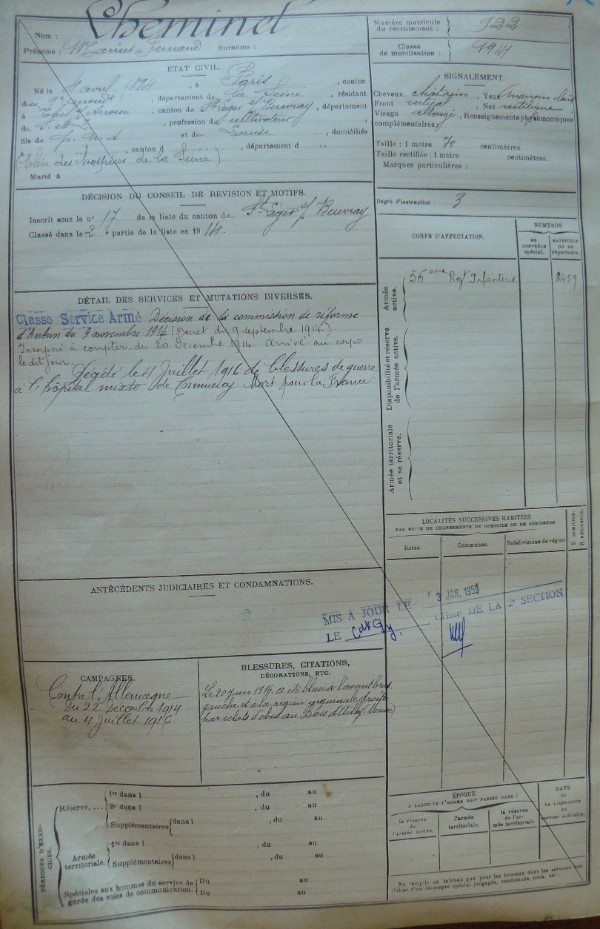 Nom : Cheminel
Prénoms : Fernand Surnoms :
Numéro matricule du recrutement : 922
Classe de mobilisation : 1914
ÉTAT CIVIL.
Né le avril à Paris, canton
d, département de la Seine, résidant
à, canton de St Léger s/ Beuvray, département
de, profession de cultivateur
fils de et de, domiciliés
à, canton d, département d
des hospices de la Seine)
Marié à
SIGNALEMENT.
Cheveux châtain, Yeux marron clair
Front vertical, Nez rectiligne
Visage allongé, Renseignements physionomiques
complémentaires :
Taille : 1 mètre 70 centimètres
Taille rectifiée : 1 mètre centimètres.
Marques particulières :
Degré d'instruction : 3
DÉCISION DU CONSEIL DE REVISION ET MOTIFS.
Inscrit sous le n° 17 de la liste du canton de St Léger s/ Beuvray
Classé dans la 2 partie de la liste en 1914
DÉTAIL DES SERVICES ET MUTATIONS DIVERSES.
Classé Service Armé Décision de la commission de réforme
d'Autun du 3 novembre 1914 (Décret du 9 septembre 1914)
Incorporé à compter du 20 Décembre 1914. Arrivé au corps
le dit jour.
Décédé le 4 Juillet 1916 de blessures de guerre
à l'hôpital mixte de Mort pour la France
CORPS D'AFFECTATION.
NUMÉROS
AU CONTRÔLE spécial.
MATRICULE OU AU répertoire.
Armée active.
55 ème Rgt Infanterie
8459
Disponibilité et réserve de l'armée active.
Armée territoriale et sa réserve.
LOCALITÉS SUCCESSIVES HABITÉES
PAR SUITE DE CHANGEMENTS DE DOMICILE OU DE RÉSIDENCE
Dates.
Communes.
Subdivisions de région.
D. DOMICILE.
R. RÉSIDENCE.
ANTÉCÉDENTS JUDICIAIRES ET CONDAMNATIONS.
MIS A JOUR LE 3 JAN. 1953
LE DE LA 2e SECTION
CAMPAGNES.
Contre l'Allemagne
du 22 décembre 1914
au 4 Juillet 1916
BLESSURES, CITATIONS,
DÉCORATIONS, ETC.
Le 20 juin a été blessé à l'avant bras
gauche et à la région inguinale droite
par éclats d'obus au Bois
PÉRIODES D'EXERCICES.
Réserve
1re dans l, du au
2e dans l, du au
Supplémentaires dans l, du au
dans l, du au
Armée territoriale.
1re dans l, du au
Supplémentaires dans l, du au
dans l, du au
Spéciales aux hommes du service de garde des voies de communication.
Du au
Du au
ÉPOQUE
À LAQUELLE L'HOMME DOIT PASSER DANS :
la réserve de l'armée active.
l'armée territoriale.
la réserve de l'armée territoriale.
DATE
de LA LIBÉRATION du service militaire.